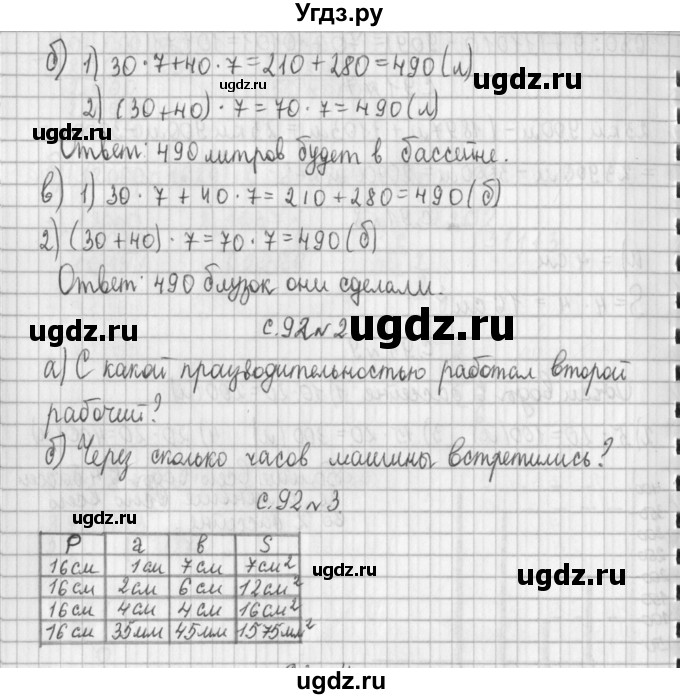 Угдз.ру
б) 1) 30·7+40·7=210+280=490(л)
2) (30+40)·7=70·7=490(л)
Ответ: 490 литров будет в бассейне.
в) 1) 30·7+40·7=210+280=490(б)
2) (30+40)·7=70·7=490(б)
Ответ: 490 блузок они сделали.
с.92 №2
а) С какой працводительностью работал второй
рабочий?
б) Через сколько часов машины встретились?
с.92 №3.
P a в S
16см 1см 7см 7см²
16см 2см 6см 12см²
16см 4см 4см 16см²
16см 35мм 45мм 1575мм²
ugdz.ru